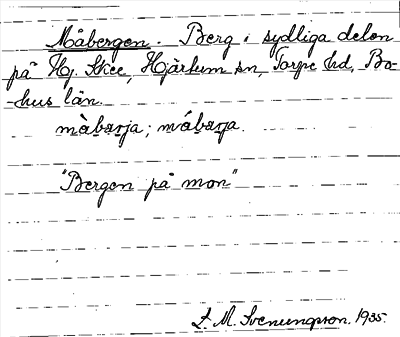 Måbergen. Berg i sydliga delen
på Hg. Skee, Hjärtum sn, Torpe hd, Bo-
-hus län.
màbærja; mábærja.
"Bergen på mon"
S. M. Svenungsson. 1935.